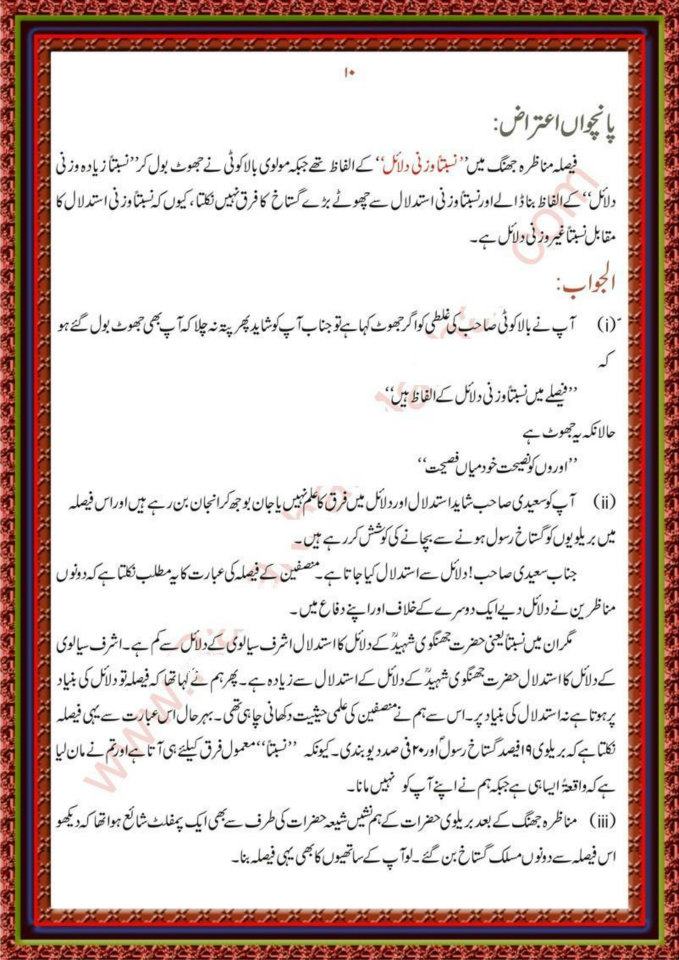 ۱۰
پانچواں اعتراض:
فیصلہ مناظرہ جھنگ میں ’’نسبتاً وزنی دلائل‘‘ کے الفاظ تھے جبکہ مولوی بالاکوٹی نے جھوٹ بول کر ’’نسبتاً زیادہ وزنی
دلائل‘‘ کے الفاظ بنا ڈالے اور نسبتاً وزنی استدلال سے چھوٹے بڑے گستاخ کا فرق نہیں نکلتا، کیوں کہ نسبتاً وزنی استدلال کا
مقابل نسبتاً غیر وزنی دلائل ہے۔
الجواب:
(i) آپ نے بالاکوٹی صاحب کی غلطی کو اگر جھوٹ کہا ہے تو جناب آپ کو شاید پھر پتہ نہ چلا کہ آپ بھی جھوٹ بول گئے ہو
کہ
’’فیصلے میں نسبتاً وزنی دلائل کے الفاظ ہیں‘‘
حالانکہ یہ جھوٹ ہے
’’اوروں کو نصیحت خود میاں فصیحت‘‘
(ii) آپ کو سعیدی صاحب شاید استدلال اور دلائل میں فرق کا علم نہیں یا جان بوجھ کر انجان بن رہے ہیں اور اس فیصلہ
میں بریلویوں کو گستاخ رسول ہونے سے بچانے کی کوشش کر رہے ہیں۔
جناب سعیدی صاحب! دلائل سے استدلال کیا جاتا ہے۔ منصفین کے فیصلہ کی عبارت کا یہ مطلب نکلتا ہے کہ دونوں
مناظرین نے دلائل دیے ایک دوسرے کے خلاف اور اپنے دفاع میں۔
مگر ان میں نسبتاً یعنی حضرت جھنگوی شہیدؒ کے دلائل کا استدلال اشرف سیالوی کے دلائل سے کم ہے۔ اشرف سیالوی
کے دلائل کا استدلال حضرت جھنگوی شہیدؒ کے دلائل کے استدلال سے زیادہ ہے۔ پھر ہم نے کہا تھا کہ فیصلہ تو دلائل کی بنیاد
پر ہوتا ہے نہ استدلال کی بنیاد پر۔ اس سے ہم نے منصفین کی علمی حیثیت دکھانی چاہی تھی۔ بہرحال اس عبارت سے یہی فیصلہ
نکلتا ہے کہ بریلوی ۱۹ فیصد گستاخ رسولؐ اور ۲۰ فی صد دیوبندی۔ کیونکہ ’’نسبتاً‘‘ معمول فرق کیلئے ہی آتا ہے اور تم نے مان لیا
ہے کہ واقعۃً ایسا ہی ہے جبکہ ہم نے اپنے آپ کو نہیں مانا۔
(iii) مناظرہ جھنگ کے بعد بریلوی حضرات کے ہم نشیں شیعہ حضرات کی طرف سے بھی ایک پمفلٹ شائع ہوا تھا کہ دیکھو
اس فیصلہ سے دونوں مسلک گستاخ بن گئے۔ لو آپ کے ساتھیوں کا بھی یہی فیصلہ بنا۔